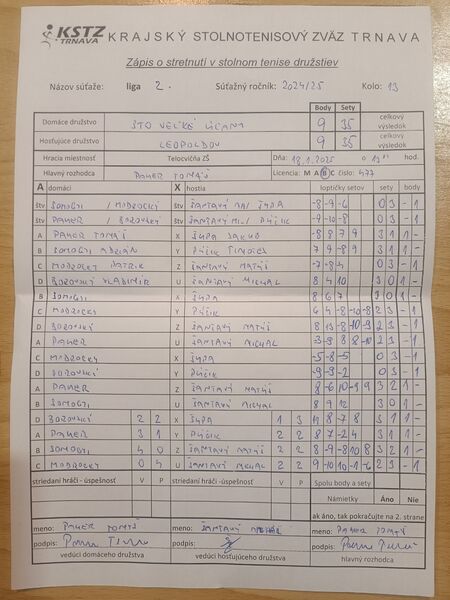 KSTZ TRNAVA KRAJSKÝ STOLNOTENISOVÝ ZVÄZ TRNAVA
Zápis o stretnutí v stolnom tenise družstiev
Názov súťaže: liga 2. Súťažný ročník: 2024/25 Kolo: 13
Body Sety
Domáce družstvo ŠTO VEĽKÉ ÚĽANY 9 35 celkový výsledok
Hosťujúce družstvo LEOPOLDOV 9 35 celkový výsledok
Hracia miestnosť Telocvičňa ZŠ Dňa: 18.1.2025 o hod.
Hlavný rozhodca PAHER TOMÁŠ Licencia: M A B C číslo: 477
A domáci X hostia loptičky setov sety body
štv SOMOGYI / MODROCKÝ štv ŠANTAVÝ MA / ŠUPA -8 -9 -6 0 3 -1
štv PAHER / BOROVSKÝ štv ŠANTAVÝ MI / -9 -10 -8 0 3 -1
A PAHER TOMÁŠ X ŠUPA JAKUB -8 8 7 9 3 1 1 -
B SOMOGYI ADRIÁN Y TIMOTEJ 7 9 -8 9 3 1 1 -
C MODROCKÝ PATRIK Z ŠANTAVÝ MATÚŠ -7 -8 0 3 -1
D BOROVSKÝ VLADIMÍR U ŠANTAVÝ MICHAL 8 4 10 3 0 1 -
B SOMOGYI X ŠUPA 8 6 7 3 0 1 -
C MODROCKÝ Y 6 -8 -10 -8 2 3 -1
D BOROVSKÝ Z ŠANTAVÝ MATÚŠ 8 -8 -10 -9 2 3 -1
A PAHER U ŠANTAVÝ MICHAL -3 -9 8 8 -10 2 3 -1
C MODROCKÝ X ŠUPA -5 -8 -5 0 3 -1
D BOROVSKÝ Y -9 -9 -2 0 3 -1
A PAHER Z ŠANTAVÝ MATÚŠ 8 -6 10 -9 9 3 2 1 -
B SOMOGYI U ŠANTAVÝ MICHAL 8 9 12 3 0 1 -
D BOROVSKÝ 2 2 X ŠUPA 1 3 8 -7 8 3 1 1 -
A PAHER 3 1 Y 2 2 8 7 -2 4 3 1 1 -
B SOMOGYI 4 0 Z ŠANTAVÝ MATÚŠ 2 2 8 -9 -8 10 8 3 2 1 -
C MODROCKÝ 0 4 U ŠANTAVÝ MICHAL 2 2 9 -10 10 -1 -6 2 3 -1
striedaní hráči - úspešnosť V P striedaní hráči - úspešnosť V P Spolu body a sety
Námietky Áno Nie
ak áno, tak pokračujte na 2. strane
meno: PAHER TOMÁŠ meno: ŠANTAVÝ MICHAL meno: PAHER TOMÁŠ
podpis: podpis: podpis:
vedúci domáceho družstva vedúci hosťujúceho družstva hlavný rozhodca